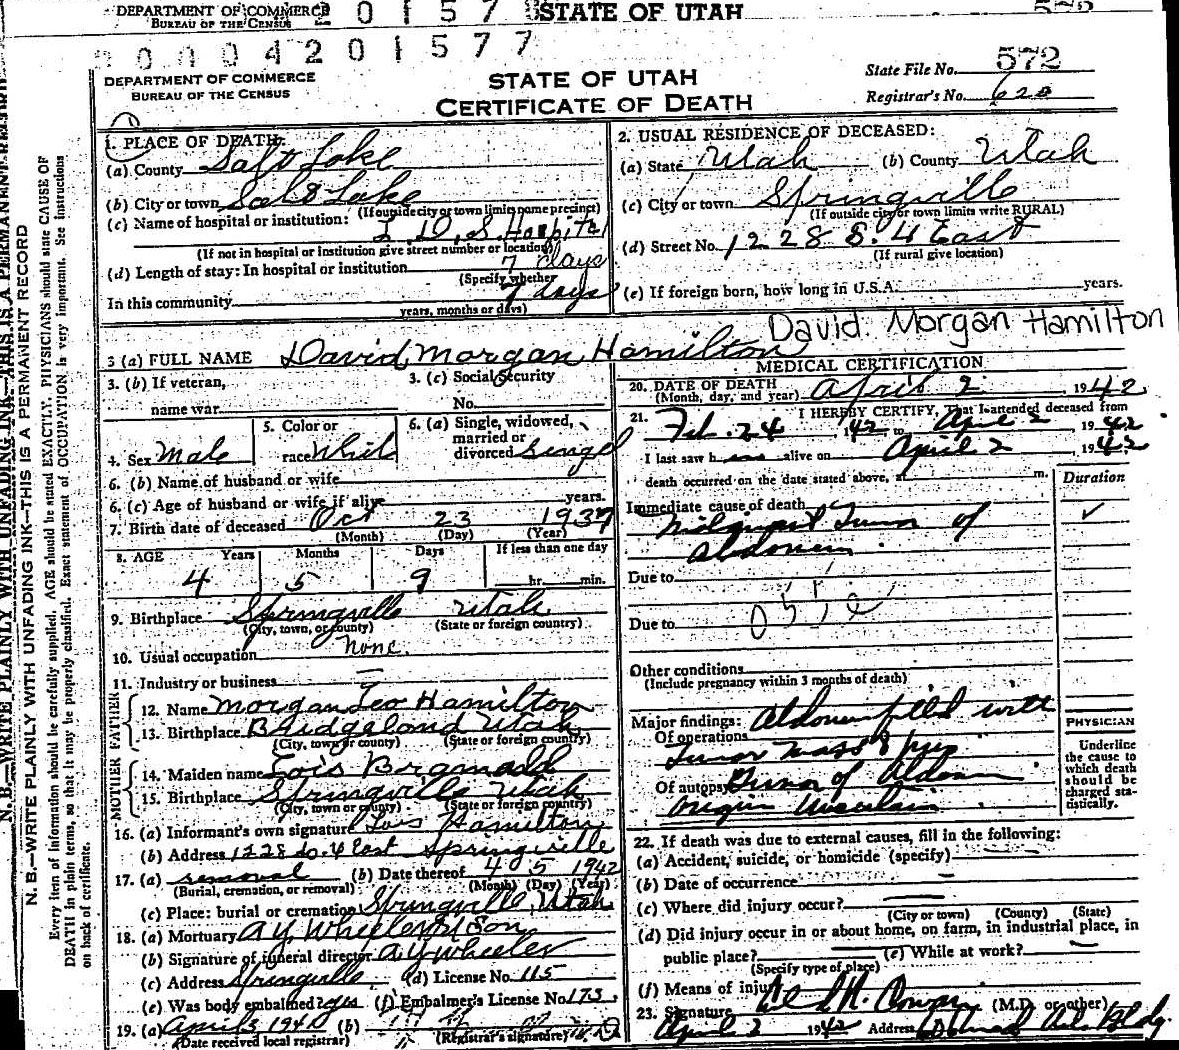 DEPARTMENT OF COMMERCE
BUREAU OF THE CENSUS
STATE OF UTAH
00004201577
DEPARTMENT OF COMMERCE
BUREAU OF THE CENSUS
STATE OF UTAH
CERTIFICATE OF DEATH
State File No. 572
Registrar's No. 620
N. B.—WRITE PLAINLY WITH UNFADING INK—THIS IS A PERMANENT RECORD
Every item of information should be carefully supplied. AGE should be stated EXACTLY. PHYSICIANS should state CAUSE OF
DEATH in plain terms, so that it may be properly classified. Exact statement of OCCUPATION is very important. See instructions
on back of certificate.
1. PLACE OF DEATH:
(a) County Salt Lake
(b) City or town Salt Lake
(If outside city or town limits name precinct)
(c) Name of hospital or institution:
L. D. S. Hospital
(If not in hospital or institution give street number or location)
(d) Length of stay: In hospital or institution 7 days
(Specify whether
In this community 7 days
years, months or days)
2. USUAL RESIDENCE OF DECEASED:
(a) State Utah (b) County Utah
(c) City or town Springville
(If outside city or town limits write RURAL)
(d) Street No. 1228 S. 4 East
(If rural give location)
(e) If foreign born, how long in U.S.A. years.
David Morgan Hamilton
3 (a) FULL NAME David Morgan Hamilton
3. (b) If veteran,
name war
3. (c) Social Security
No.
4. Sex Male
5. Color or
race White
6. (a) Single, widowed,
married or
divorced Singel
6. (b) Name of husband or wife
6. (c) Age of husband or wife if alive years.
7. Birth date of deceased Oct 23 1937
(Month) (Day) (Year)
8. AGE Years Months Days If less than one day
4 5 9 hr. min.
9. Birthplace Springville Utah
(City, town, or county) (State or foreign country)
10. Usual occupation none.
11. Industry or business
FATHER
12. Name Morgan Leo Hamilton
13. Birthplace Bridgeland Utah
(City, town or county) (State or foreign country)
MOTHER
14. Maiden name Lois
15. Birthplace Springville Utah
(City, town or county) (State or foreign country)
16. (a) Informant's own signature Lois Hamilton
(b) Address 1228 So. 4 East Springville
17. (a) removal (b) Date thereof 4 5 1942
(Burial, cremation, or removal) (Month) (Day) (Year)
(c) Place: burial or cremation Springville, Utah
18. (a) Mortuary A Y Wheeler & Son
(b) Signature of funeral director A. Y. Wheeler
(c) Address Springville (d) License No. 115
(e) Was body embalmed? yes (f) Embalmer's License No. 173
19. (a) April 3 (b)
(Date received local registrar) (Registrar's signature)
MEDICAL CERTIFICATION
20. DATE OF DEATH April 2 1942
(Month, day, and year)
21. I HEREBY CERTIFY, That I attended deceased from
Feb. 24, 42 to April 2 1942
I last saw h alive on April 2 1942
death occurred on the date stated above, at m.
Duration
Immediate cause of death
Malignant Tumor of
Abdomen
Due to
Due to
Other conditions
(Include pregnancy within 3 months of death)
Major findings: Abdomen filled with
Of operations
Tumor mass
Of autopsy Tumor of Abdomen
Origin Uncertain
PHYSICIAN
Underline
the cause to
which death
should be
charged sta-
tistically.
22. If death was due to external causes, fill in the following:
(a) Accident, suicide, or homicide (specify)
(b) Date of occurrence
(c) Where did injury occur?
(City or town) (County) (State)
(d) Did injury occur in or about home, on farm, in industrial place, in
public place? (e) While at work?
(Specify type of place)
(f) Means of injury
23. Signature (M.D. or other)
April 2 1942 Address Bldg.